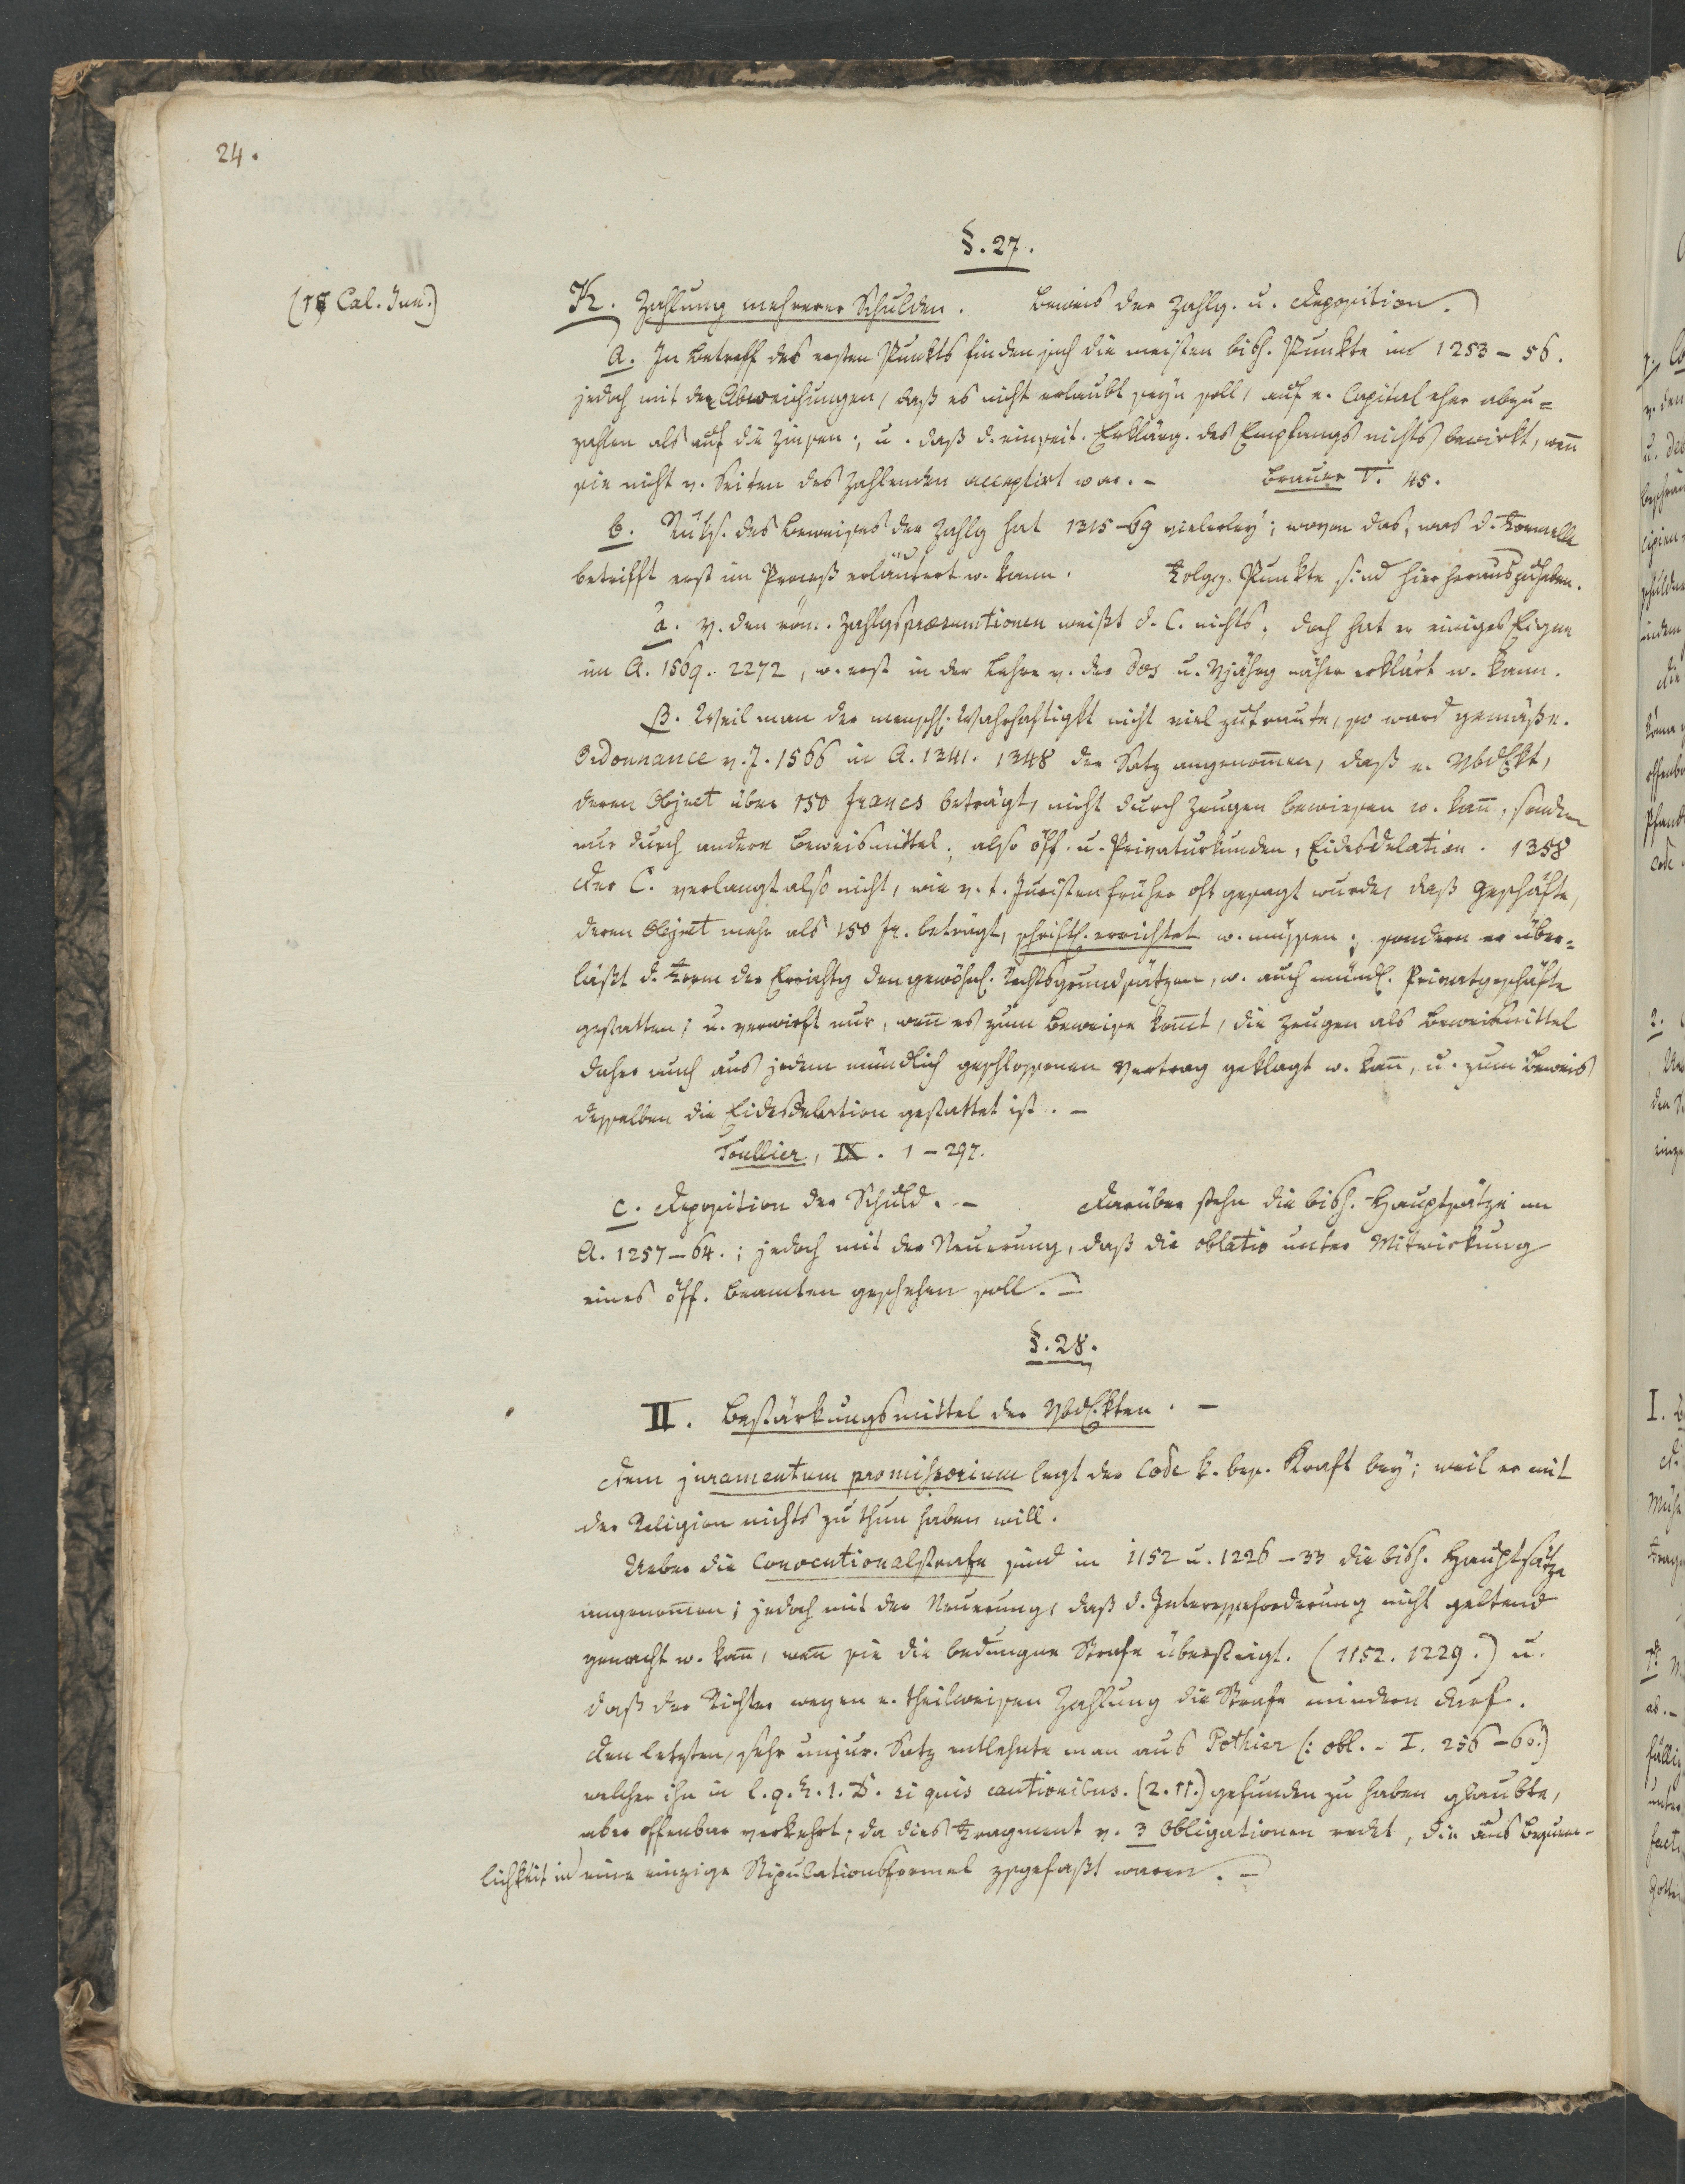 24.
§. 27.
(18 Cal. Jun.)
K. Zahlung mehrerer Schulden. Beweis der Zahlg. u. Deposition.
a. In Betreff des ersten Punkts finden sich die meisten bish. Punkte in 1253–56.
jedoch mit den Abweichungen, daß es nicht erlaubt seyn soll, auf e. Capital eher abzu=
zahlen als auf die Zinsen; u. daß d. einseit. Erklärg. des Empfangs nichts bewirkt, wenn
sie nicht v. Seiten des Zahlenden acceptirt war. – Brauer V. 45.
b. Rüks. des Beweises der Zahlg hat 1315–69 vielerley; wovon das, was d. Formelle
betrifft erst im Proceß erläutert w. kann. Folgg. Punkte sind hier herauszuheben.
α. V. den röm. Zahlgspraesumtionen weißt d. C. nichts; doch hat er einiges Eigne
im A. 1569. 2272, w. erst in der Lehre v. der dos u. Vjährg näher erklärt w. kann.
β. Weil man der menschl. Wahrhaftigkt nicht viel zutraute, so ward gemäß e.
Ordonnance v. J. 1566 in A. 1341. 1348 der Satz angenommen, daß e. Vbdlkt,
deren Object über 150 francs beträgt, nicht durch Zeugen bewiesen w. kann, sondern
nur durch andere Beweismittel; also öff. u. Privaturkunden, Eidesdelation. 1358
Der C. verlangt also nicht, wie v. t. Juristen früher oft gesagt wurde, daß Geschäfte,
deren Object mehr als 150 fr. beträgt, schriftl. errichtet w. müssen; sondern er über=
läßt d. Form der Errichtg den gewöhnl. Rechtsgrundsätzen, w. auch mündl. Privatgeschäfte
gestatten; u. verwirft nur, wenn es zum Beweise kommt, die Zeugen als Beweismittel
daher auch aus jedem mündlich geschlossenen Vertrag geklagt w. kann, u. zum Beweis
desselben die Eidesdelation gestattet ist. –
Toullier, IX. 1–297.
c. Deposition der Schuld. – Darüber stehn die bish. Hauptsätze im
A. 1257–64.; jedoch mit der Neuerung, daß die oblatio unter Mitwirkung
eines öff. Beamten geschehen soll. –
§. 28.
II. Bestärkungsmittel der Vbdlkten. –
Dem juramentum promissorium legt der Code k. bes. Kraft bey; weil er mit
der Religion nichts zu thun haben will.
Ueber die Conventionalstrafe sind in 1152 u. 1226–33 die bish. Hauptsätze
angenommen; jedoch mit der Neuerung, daß d. Interesseforderung nicht geltend
gemacht w. kann, wenn sie die bedungne Strafe übersteigt. (1152. 1229.) u.
daß der Richter wegen e. theilweisen Zahlung die Strafe mindern darf.
Den letzten, sehr unjur. Satz entlehnte man aus Pothier (: obl. – I. 256–60.)
welcher ihn in l. 9. §. 1. D. si quis cautionibus. (2. 11.) gefunden zu haben glaubte,
aber offenbar verkehrt; da dies Fragment v. 3 Obligationen redet, die aus Bequem-
lichkeit in eine einzige Stipulationsformel zsgefaßt waren. –